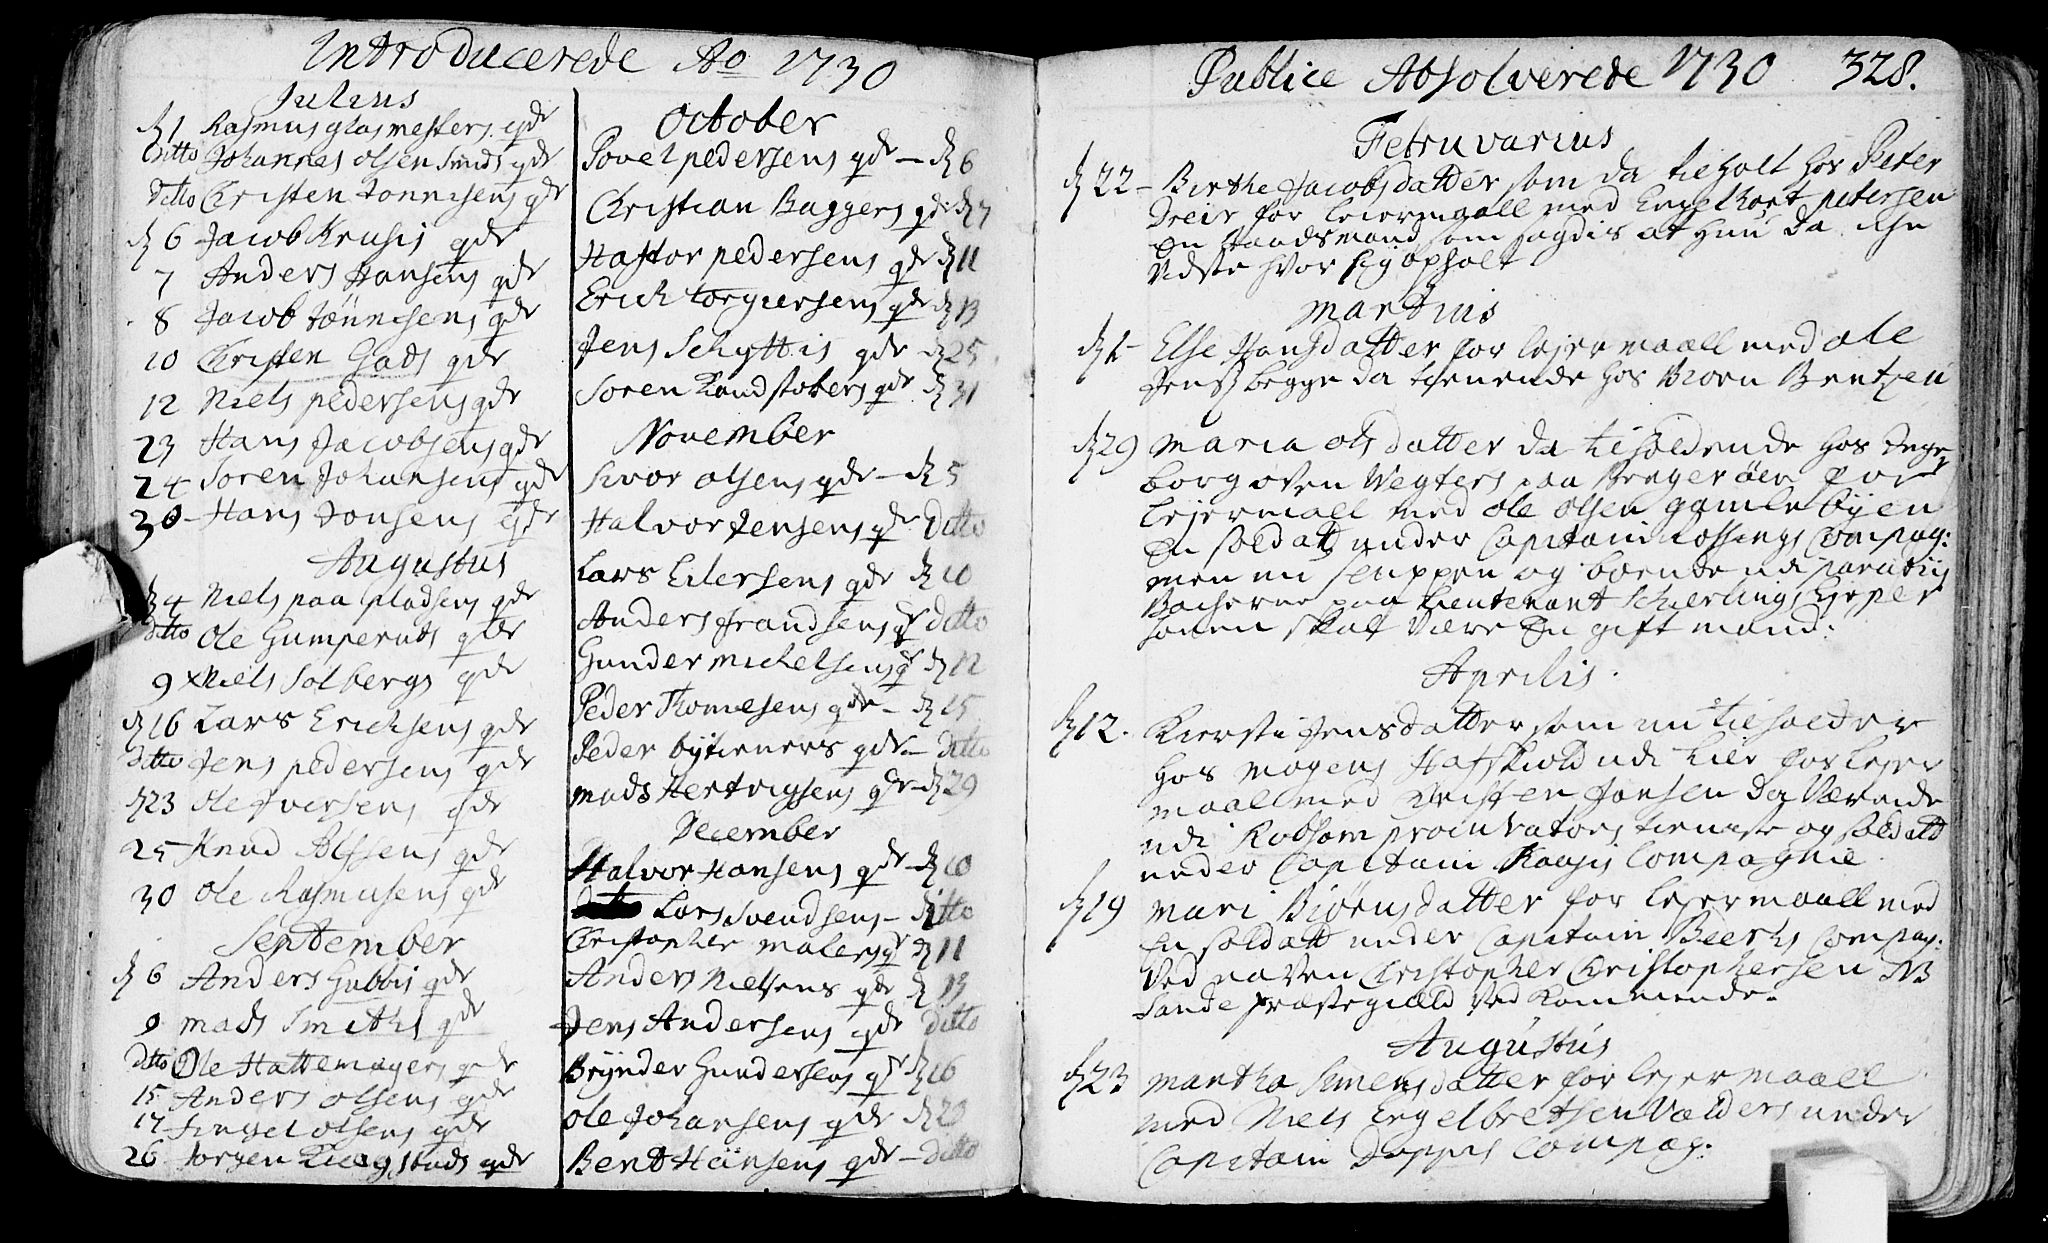 Introducerede Ao 1730
Julius
d 1 Rasmus glasmesters qdr
Ditto Johannes Olsen Smids qdr
Ditto Christen Jonnisens qdr
d 6 Jacob Krusis qdr
7 Anders Hansens qdr
8 Jacob Jönnisens qdr
10 Christen Gads qdr
12 Niels pedersens qdr
23 Hans Jacobsens qdr
24 Soren Johansens qdr
30 Hans Jonsens qdr
Augustus
d 4 Niels paa pladsens qdr
Ditto Ole Gumperuds qdr
9 x Niels Solbergs qdr
d 16 Lars Erichsens qdr
Ditto Jens pedersens qdr
d 23 Ole Iversens qdr
25 Knud Alssens qdr
30 Ole Rasmusens qdr
September
d 6 Anders Gubbis qdr
9 mads Smiths qdr
Ditto Ole Hattemagers qdr
15 Anders Olsens qdr
17 Olsens qdr
26 Jorgen qdr
October
Povel pedersens qdr – d 6
Christian Baggers qdr d 7
Haftor pedersens qdr d 11
Erich torgiersens qdr d 13
Jens Schyttis qdr d 25
Soren Kandstobers qdr d 31
November
Sivor olsens qdr – d 5
Halvor Jensens qdr Ditto
Lars Eilersens qdr d 10
Anders Frandsens qdr Ditto
Gunder michelsens qdr d 12
Peder Thomesens qdr – d 15
Peder bytieners qdr – Ditto
mads Hertvigsens qdr – d 29
December
Halvor Hansens qdr – d 10
Lars Svendsens – Ditto
Christopher malers qdr d 11
Anders Nielsens qdr d 13
Jens Andersens qdr Ditto
Brynder Gundersens qdr d 16
Ole Johansens qdr d 20
Bent Hansens qdr – Ditto
Publice Absolverede 1730 328.
Februarius
d 22 – Birthe Jacobsdatter som da tilholt hos Peter
Dreir for leiermaall med Engelbret petersen
En Landsmand som sagdis at hun da iche
Vidste hvor sig opholt
Martius
d 1 – Else Hansdatter for leiermaall med ole
Jenss begge da tienende hos Biorn Bentzen
d 29 Maria olsdatter da tilholdende hos Inge-
borg oven Wegters paa Brageröen for
leiermaall med ole olsen gamlebÿen
En soldat under Capitain Rossings Compag:
men nu og boende
paa Lieutenant Schierlings
skal være En gift mand:
Aprilis
d 12. Kiersti Jensdatter som nu tilholder
hos mogens Hafskiold udi Lier for leier
maall med Christen Jansen da Værende
udi procurators tieniste og soldat
under Capitain Compagnie
d 19 Mari Biörnsdatter for leiermaall med
En soldat under Capitain Compag:
Ved naven Christopher Christophersen
Sande præstegield Ved Kommende.
Augustus
d 23 Martha Simensdatter for leiermaall
med Niels Engelbretsen under
Capitain Compag: